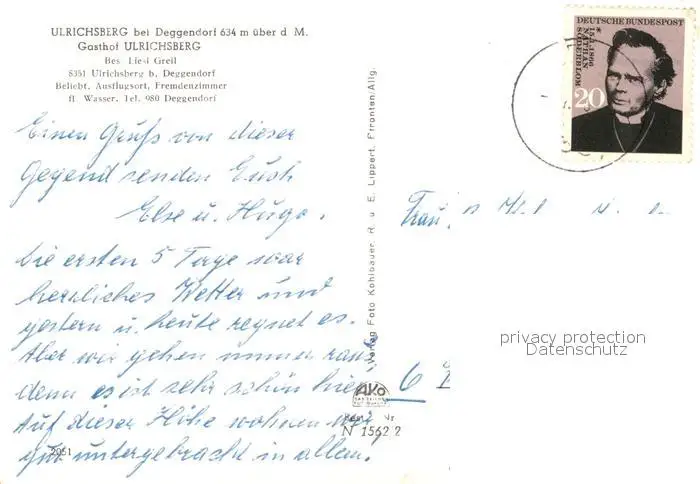 ULRICHSBERG bei Deggendorf 634 m über d M.
Gasthof ULRICHSBERG
Bes Liesl Greil
8351 Ulrichsberg b. Deggendorf
Beliebt. Ausflugsort, Fremdenzimmer
fl Wasser. Tel. 980 Deggendorf
Einen Gruß von dieser
Gegend senden Euch
Else u. Hugo.
Die ersten 5 Tage war
herrliches Wetter und
gestern u. heute regnet es.
Aber wir gehen immer raus,
denn es ist sehr schön hier.
Auf dieser Höhe wohnen wir
gut untergebracht in allem.
2051
Verlag Foto Kohlbauer, R. u. E. Lippert, Pfronten/Allg.
AKO
Nr
N 1562 2
DEUTSCHE BUNDESPOST
* 15.1.1866
NATHAN
SÖDERBLOM
20
Frau
6
privacy protection
Datenschutz